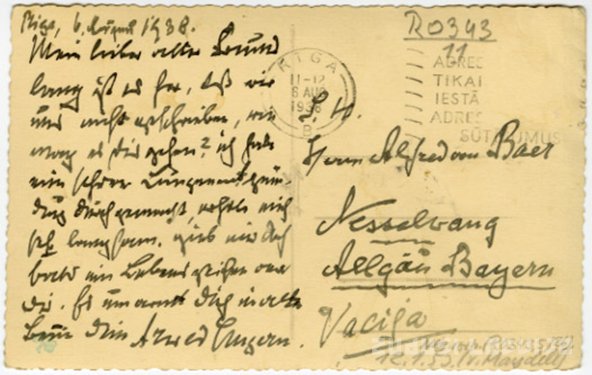 Riga, 6. August 1938.
Mein lieber alter Freund
lang ist es her, daß wir
uns nicht geschrieben, wie
mag es dir gehen? ich habe
eine schwere Lungenentzün-
dung durchgemacht, erhole mich
sehr langsam. gieb mir doch
bald ein Lebenszeichen von
dir. Es umarmt dich in alter
dein Arved Ungern.
R0343
11
RIGA
11-12
6 AUG
1938
B
ADRES
TIKAI
IESTĀ
ADRES
SŪT
UMUS
S. H.
Herrn Alfred von Baer
Nesselwang
Allgäu Bayern
Vācija
12.1.53